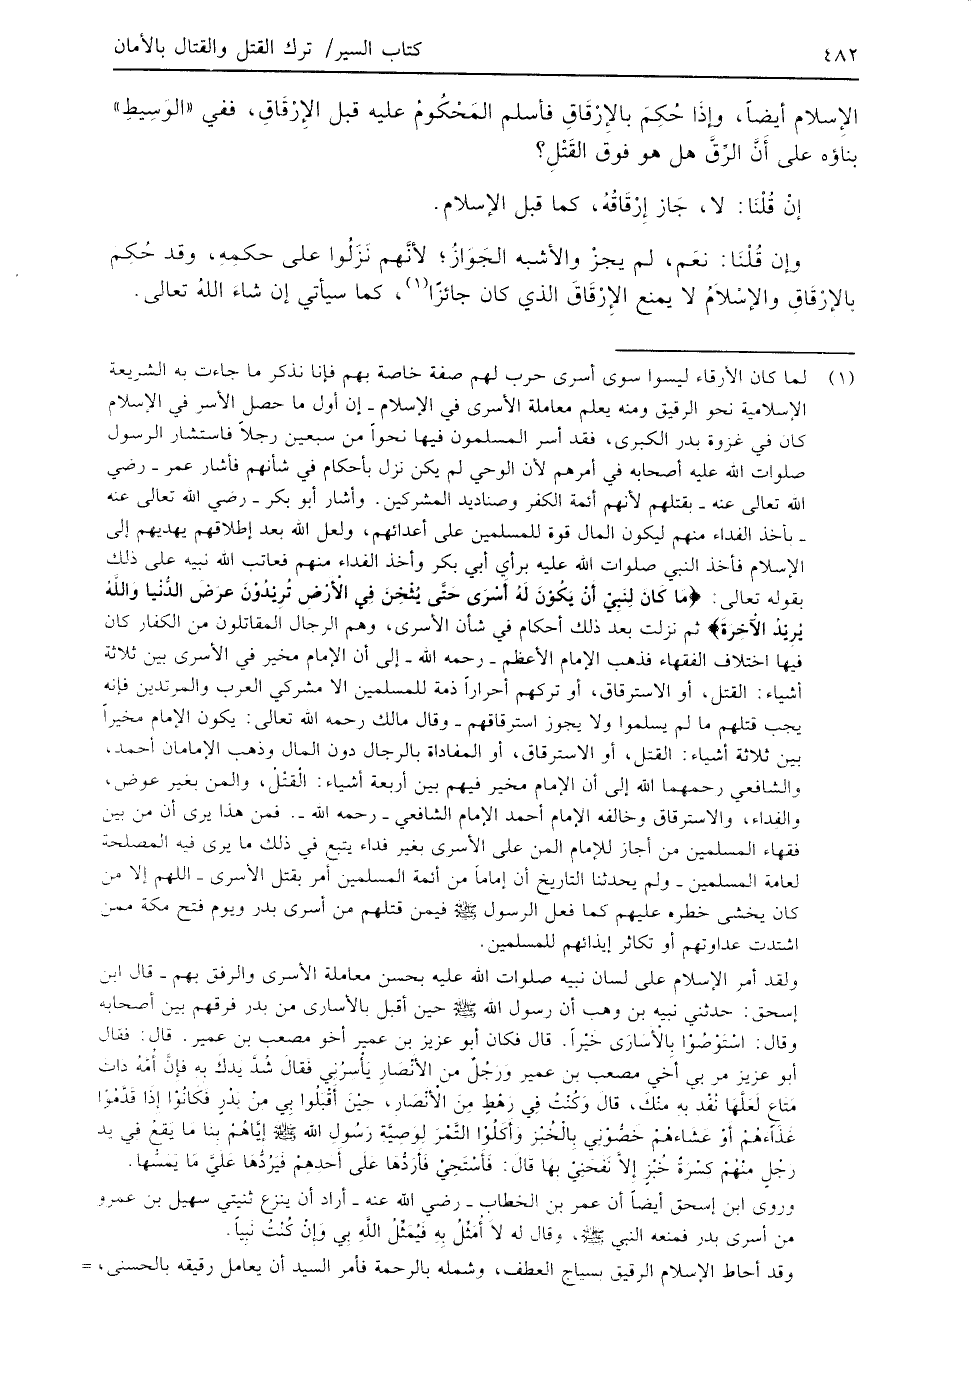 ٤٨٢ كتاب السير/ ترك القتل والقتال بالأمان
الإسلام أيضاً، وإذَا حُكِمَ بالإِرْقَاقِ فأسلم المَحْكُومُ عليه قبل الإِرْقَاقِ، ففي «الوَسِيطِ»
بناؤه على أَنَّ الرِّقَّ هل هو فوق القَتْلِ؟
إنْ قُلْنَا: لا، جَاز إِرْقَاقُهُ، كما قبل الإسلام.
وإن قُلْنَا: نعَم، لم يجزْ والأشبه الجَوَازُ؛ لأنَّهم نَزَلُوا على حكمِهِ، وقد حُكِمَ
بالإرْقَاقِ والإسْلاَمُ لا يمنع الإِرْقَاقَ الذي كان جائزًا(١)، كما سيأتي إن شاءَ اللهُ تعالى.
(١) لما كان الأرقاء ليسوا سوى أسرى حرب لهم صفة خاصة بهم فإنا نذكر ما جاءت به الشريعة
الإسلامية نحو الرقيق ومنه يعلم معاملة الأسرى في الإسلام ـ إن أول ما حصل الأسر في الإسلام
كان في غزوة بدر الكبرى، فقد أسر المسلمون فيها نحواً من سبعين رجلاً فاستشار الرسول
صلوات الله عليه أصحابه في أمرهم لأن الوحي لم يكن نزل بأحكام في شأنهم فأشار عمر ـ رضي
الله تعالى عنه ـ بقتلهم لأنهم أئمة الكفر وصناديد المشركين. وأشار أبو بكر ـ رضي الله تعالى عنه
ـ بأخذ الفداء منهم ليكون المال قوة للمسلمين على أعدائهم، ولعل الله بعد إطلاقهم يهديهم إلى
الإسلام فأخذ النبي صلوات الله عليه برأي أبي بكر وأخذ الفداء منهم فعاتب الله نبيه على ذلك
بقوله تعالى: ﴿مَا كَانَ لِنَبِيْ أَنْ يَكُوْنَ لَهُ أَسْرَى حَتَّى يُثْخِنَ فِي الْأَرْضِ تُرِيْدُوْنَ عَرَضَ الدُّنْيَا وَاللَّهُ
يُرِيْدُ الْآخِرَةَ﴾ ثم نزلت بعد ذلك أحكام في شأن الأسرى، وهم الرجال المقاتلون من الكفار كان
فيها اختلاف الفقهاء فذهب الإمام الأعظم ـ رحمه الله ـ إلى أن الإمام مخير في الأسرى بين ثلاثة
أشياء: القتل، أو الاسترقاق، أو تركهم أحراراً ذمة للمسلمين الا مشركي العرب والمرتدين فإنه
يجب قتلهم ما لم يسلموا ولا يجوز استرقاقهم ـ وقال مالك رحمه الله تعالى: يكون الإمام مخيراً
بين ثلاثة أشياء: القتل، أو الاسترقاق، أو المفاداة بالرجال دون المال وذهب الإمامان أحمد،
والشافعي رحمهما الله إلى أن الإمام مخير فيهم بين أربعة أشياء: الْقَتْلُ، والمن بغير عوض،
والفداء، والاسترقاق وخالفه الإمام أحمد الإمام الشافعي ـ رحمه الله ـ. فمن هذا يرى أن من بين
فقهاء المسلمين من أجاز للإمام المن على الأسرى بغير فداء يتبع في ذلك ما يرى فيه المصلحة
لعامة المسلمين ـ ولم يحدثنا التاريخ أن إماماً من أئمة المسلمين أمر بقتل الأسرى ـ اللهم إلا من
كان يخشى خطره عليهم كما فعل الرسول ﷺ فيمن قتلهم من أسرى بدر ويوم فتح مكة ممن
اشتدت عداوتهم أو تكاثر إيذائهم للمسلمين.
ولقد أمر الإسلام على لسان نبيه صلوات الله عليه بحسن معاملة الأسرى والرفق بهم ـ قال ابن
إسحق: حدثني نبيه بن وهب أن رسول الله ﷺ حين أقبل بالأسارى من بدر فرقهم بين أصحابه
وقال: اسْتَوْصُوْا بِالْأَسَارَى خَيْراً. قال فكان أبو عزيز بن عمير أخو مصعب بن عمير. قال: فقال
أبو عزيز مر بي أخي مصعب بن عمير وَرَجُلٌ من الأَنْصَارِ يَأْسِرُنِي فَقَالَ شُدَّ يدكَ به فإنَّ أُمَّهُ ذات
مَتَاعٍ لَعَلَّهَا تُفْد به مِنْكَ، قال وَكُنْتُ فِي رَهْطٍ مِنَ الْأَنْصَارِ، حِيْنَ أَقْبَلُوا بِي مِنْ بَدْرٍ فَكَانُوْا إِذَا قَدَّمُوْا
غَدَاءَهُمْ أَوْ عَشَاءَهُمْ خَصُّوْنِي بِالْخُبْزِ وَأَكَلُوْا التَّمْرَ لِوَصِيَّةِ رَسُوْلِ اللهِ ﷺ إِيَّاهُمْ بِنا مَا يَقَعُ في يد
رَجُلٍ مِنْهُمْ كِسْرَةُ خُبْزٍ إلاَّ نَفَحَنِيْ بِهَا قالَ: فَأَسْتَحِيْ فَأَرُدُّهَا عَلَى أَحَدِهِمْ فَيَرُدُّهَا عَلَيَّ مَا يَمَسُّهَا.
وروى ابن إسحق أيضاً أن عمر بن الخطاب ـ رضي الله عنه ـ أراد أن ينزع ثنيتي سهيل بن عمرو
من أسرى بدر فمنعه النبي ﷺ، وقال له لاَ أُمَثِّلُ بِهِ فَيُمَثِّلُ اللَّهُ بِي وَإِنْ كُنْتُ نَبِياً.
وقد أحاط الإسلام الرقيق بسياج العطف، وشمله بالرحمة فأمر السيد أن يعامل رقيقه بالحسنى، =